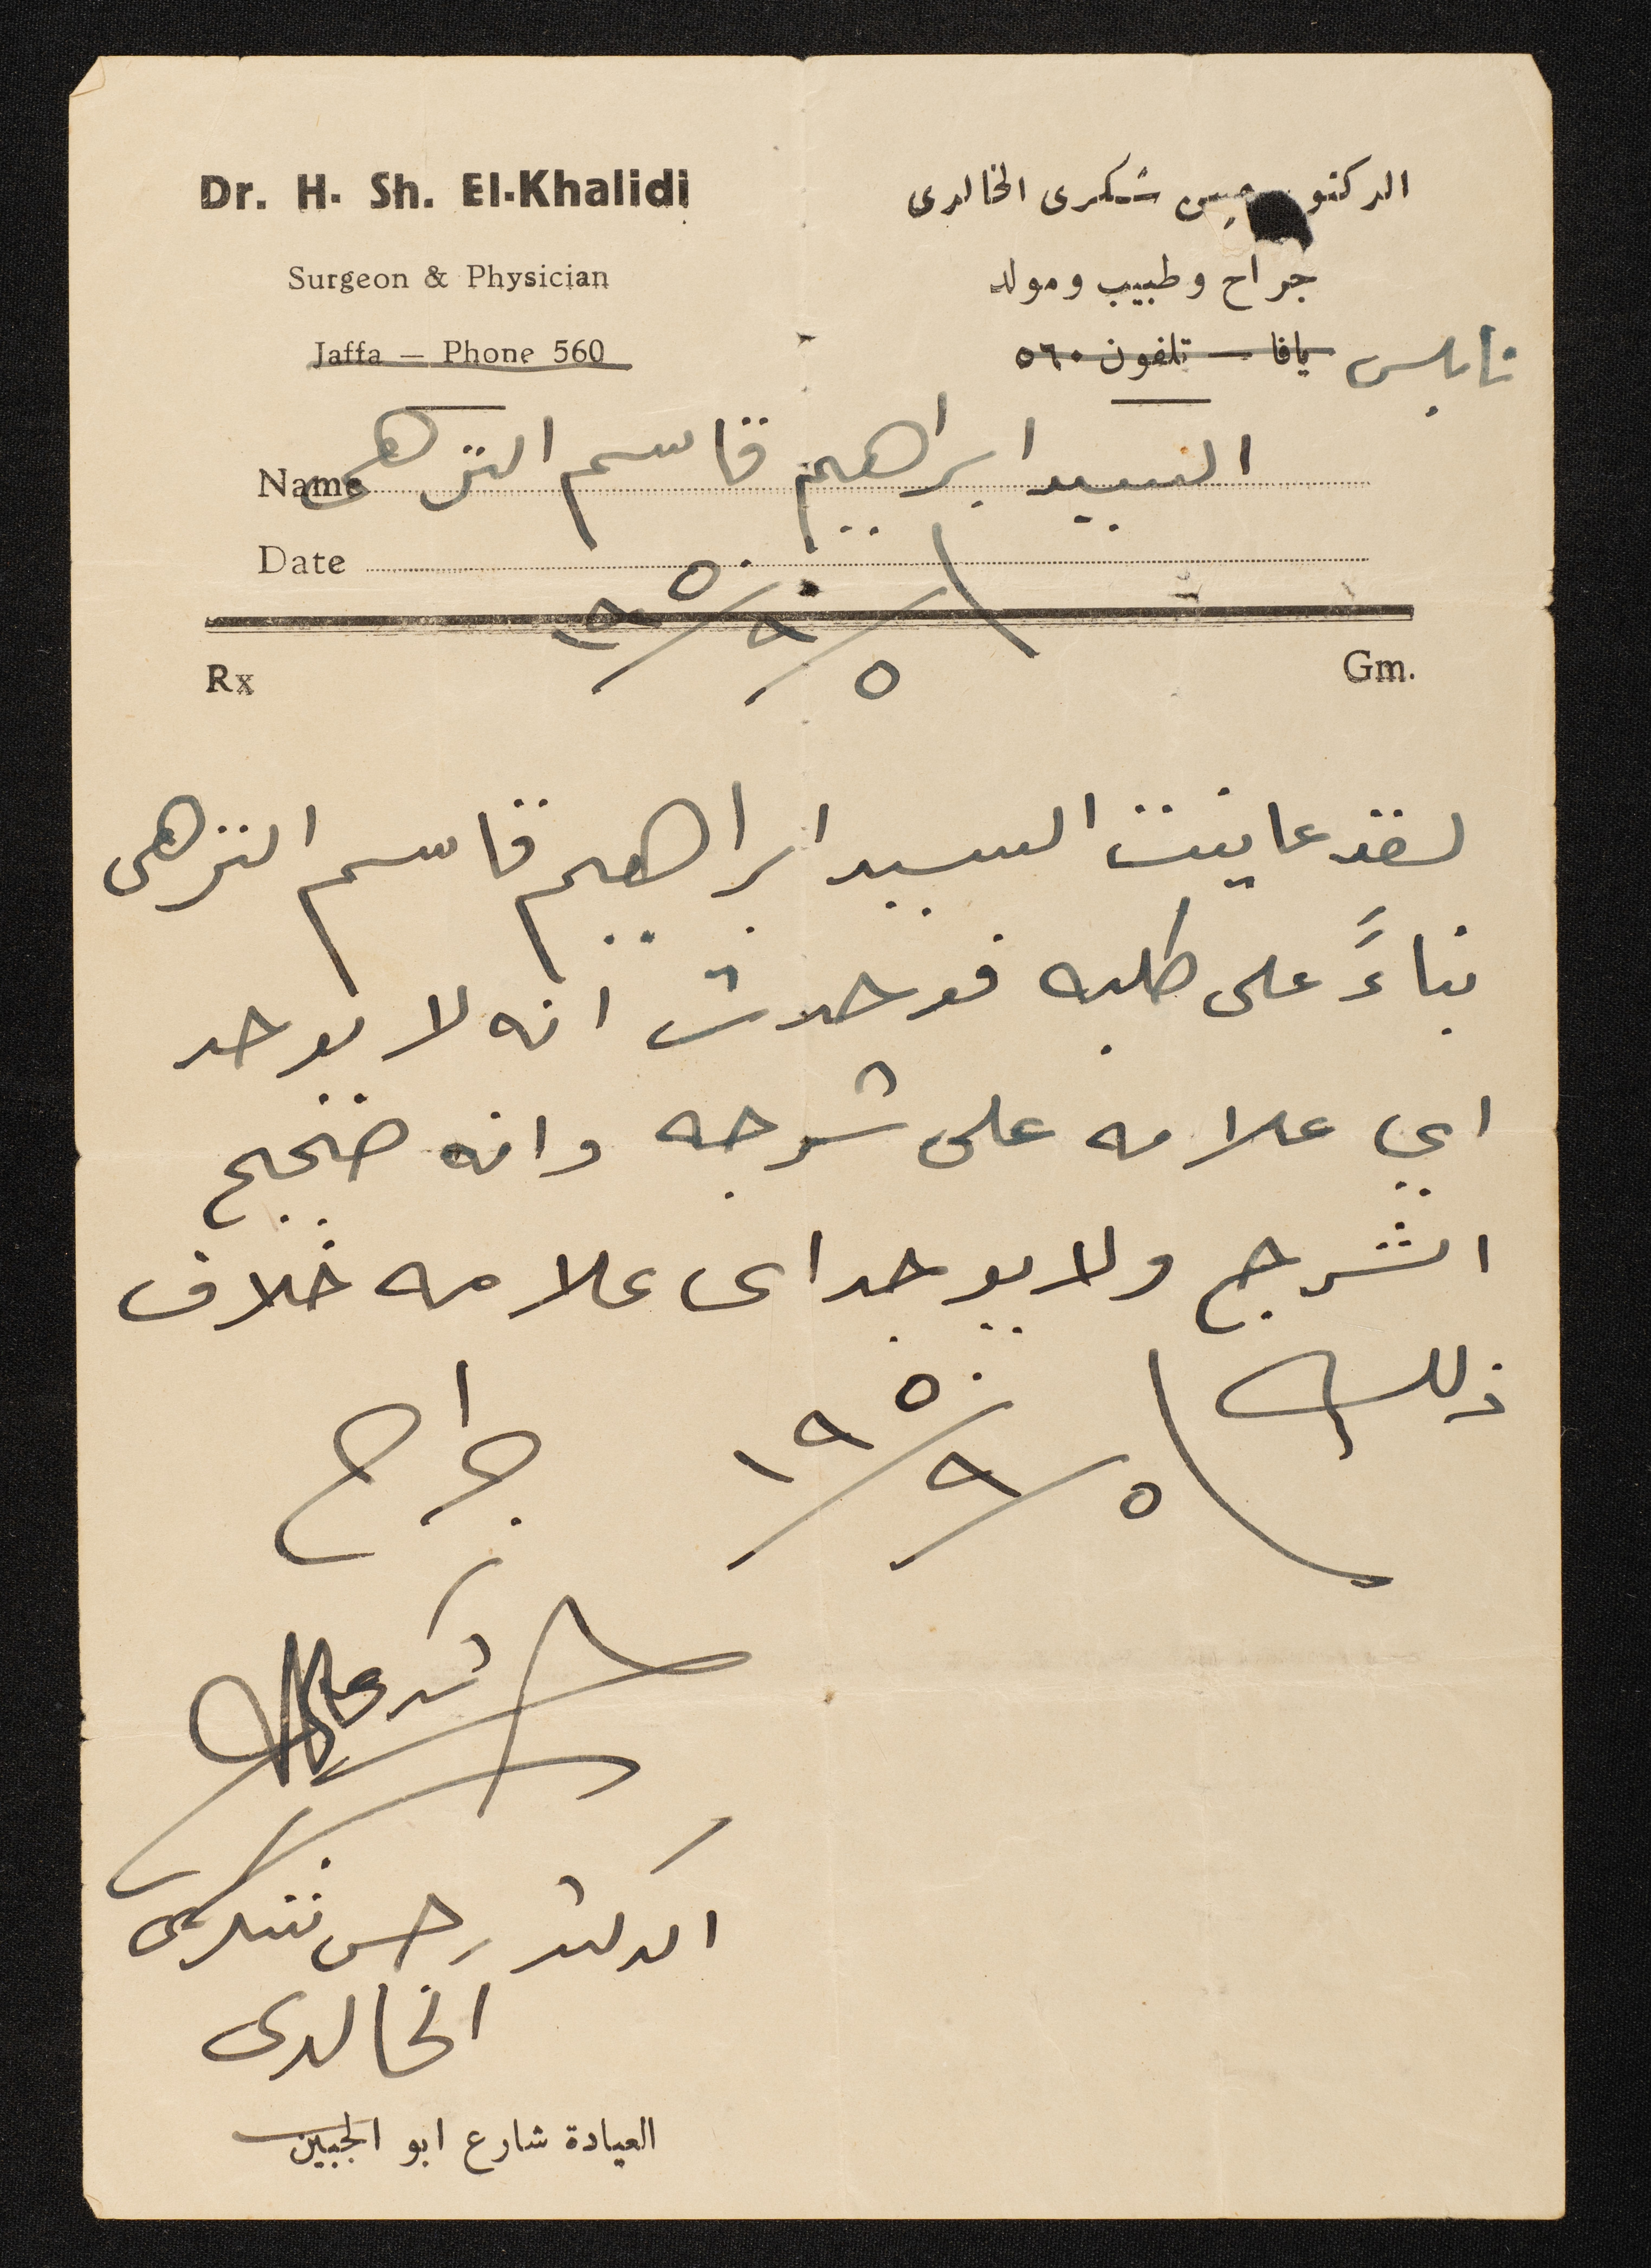 Dr. H. Sh. El-Khalidi
Surgeon & Physician
Jaffa — Phone 560
الدكتور حسن شكرى الخالدى
جراح وطبيب ومولد
يافا — تلفون ٥٦٠ نابلس
Name السيد ابراهيم قاسم النزهى
Date ٥/٩/١٩٥٠
Rx
Gm.
لقد عاينت السيد ابراهيم قاسم النزهى
بناءً على طلبه فوجدت انه لا يوجد
اي علامه على شرجه وانه صحيح
الشرج ولا يوجد اى علامه خلاف
ذلك ٥/٩/١٩٥٠
جراح
الدكتور حسن شكرى
الخالدى
العيادة شارع ابو الجبين